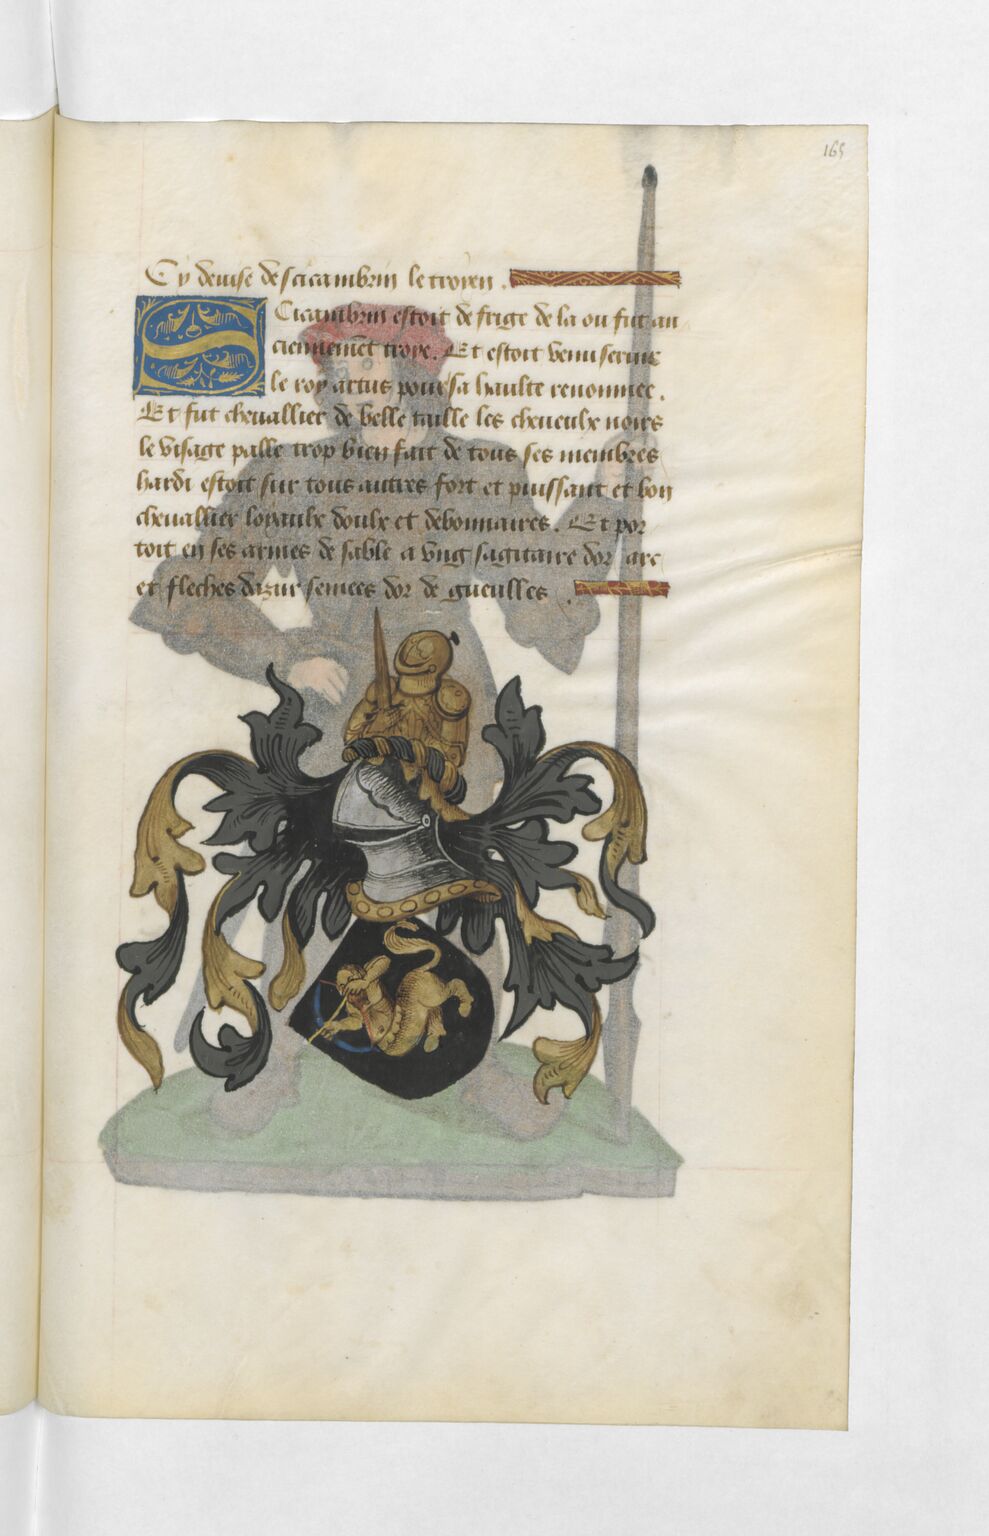 165
Cy devise de scicambrin le troyen .
Scicambrin estoit de frige de la ou fut an
ciennemēt troye. Et estoit venu servir
le roy artus pour sa haulte renommee .
Et fut chevallier de belle taille les cheveulx noirs
le visage palle trop bien fait de tous ses membres
hardi estoit sur tous autres fort et puissant et bon
chevallier loyaulx doulx et debonnaires . Et por
toit en ses armes de sable a ung sagitaire dor arc
et fleches dazur semees dor de gueulles .